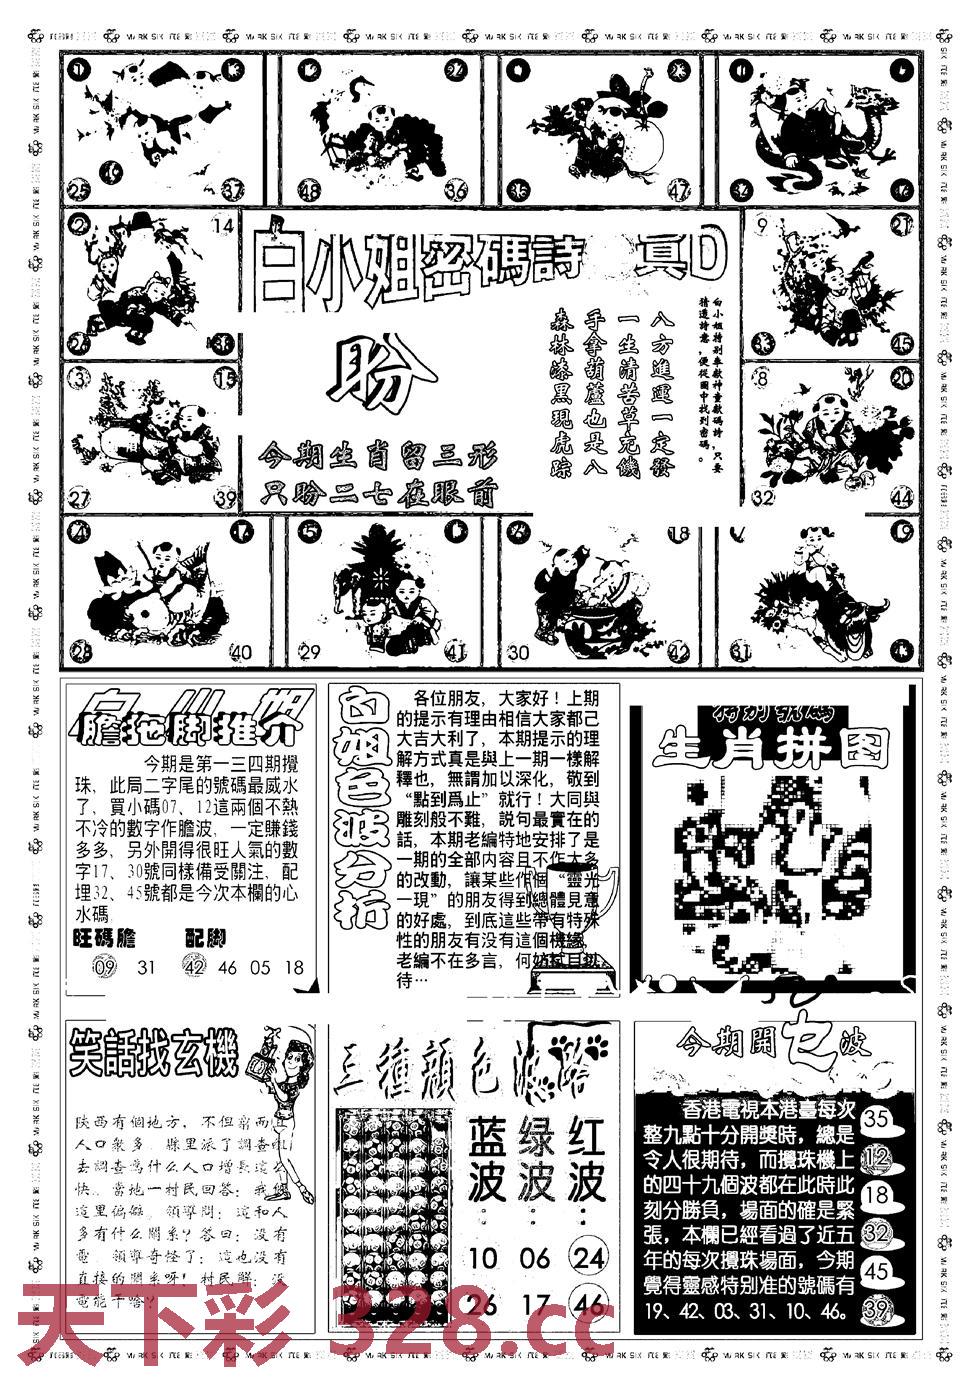 25
37
48
36
35
47
2
14
白小姐密碼詩
真D
9
21
33
45
八方進運一定發
一生清苦草充饑
手拿葫蘆也是八
森林漆黑現虎踪
白小姐特别奉獻神童數碼詩,只要
猜透詩意,便從圖中找到密碼。
盼
今期生肖留三形
只盼二七在眼前
3
15
27
39
8
20
32
44
28
40
5
29
41
18
30
42
19
31
膽拖脚推介
今期是第一三四期攪
珠，此局二字尾的號碼最威水
了，買小碼07、12這兩個不熱
不冷的數字作膽波，一定賺錢
多多，另外開得很旺人氣的數
字17、30號同樣備受關注，配
埋32、45號都是今次本欄的心
水碼
旺碼膽 配脚
09 31 42 46 05 18
白姐色波分析
各位朋友，大家好！上期
的提示有理由相信大家都己
大吉大利了，本期提示的理
解方式真是與上一期一樣解
釋也，無謂加以深化，敬到
“點到爲止”就行！大同與
雕刻般不難，説句最實在的
話，本期老編特地安排了是
一期的全部内容且不作太多
的改動，讓某些作個“靈光
一現”的朋友得到總體見意
的好處，到底這些帶有特殊
性的朋友有没有這個機緣，
老編不在多言，何妨拭目以
待…
特别號碼
生肖拼图
笑話找玄機
陕西有個地方，不但窮而且
人口衆多，縣里派了調查組
去調查爲什么人口增長這么
快。當地一村民回答：我們
這里偏僻。領導問：這和人
多有什么關系？答曰：没有
電。領導奇怪了：這也没有
直接的關系呀！村民解：没
電能干啥？
三種顔色波路
蓝波：
10
26
绿波：
06
17
红波：
24
46
今期開乜波
香港電視本港臺每次
整九點十分開獎時，總是
令人很期待，而攪珠機上
的四十九個波都在此時此
刻分勝負，場面的確是緊
張，本欄已經看過了近五
年的每次攪珠場面，今期
覺得靈感特别准的號碼有
19、42、03、31、10、46。
35
12
18
32
45
39
天下彩 328.cc